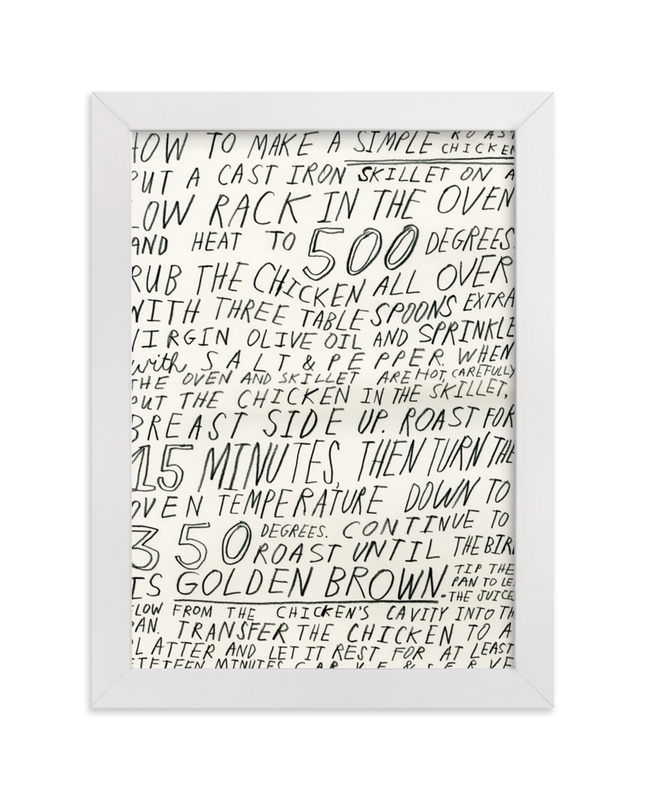 HOW TO MAKE A SIMPLE ROAST CHICKEN
PUT A CAST IRON SKILLET ON A
LOW RACK IN THE OVEN
AND HEAT TO 500 DEGREES.
RUB THE CHICKEN ALL OVER
WITH THREE TABLESPOONS EXTRA
VIRGIN OLIVE OIL AND SPRINKLE
with SALT & PEPPER. WHEN
THE OVEN AND SKILLET ARE HOT, CAREFULLY
PUT THE CHICKEN IN THE SKILLET,
BREAST SIDE UP. ROAST FOR
15 MINUTES, THEN TURN THE
OVEN TEMPERATURE DOWN TO
350 DEGREES. CONTINUE TO
ROAST UNTIL THE BIRD
IS GOLDEN BROWN.
TIP THE
PAN TO LET
THE JUICE
FLOW FROM THE CHICKEN'S CAVITY INTO TH
PAN. TRANSFER THE CHICKEN TO A
PLATTER AND LET IT REST FOR AT LEAST
FIFTEEN MINUTES CARVE & SERVE